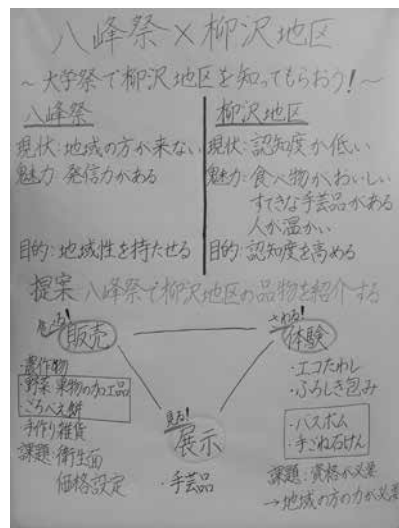 八峰祭×柳沢地区
~大学祭で柳沢地区を知ってもらおう!~
八峰祭
現状:地域の方が来ない
魅力:発信力がある
目的:地域性を持たせる
柳沢地区
現状:認知度が低い
魅力:食べ物がおいしい
すてきな手芸品がある
人が温かい
目的:認知度を高める
提案 八峰祭で柳沢地区の品物を紹介する
販売
・農作物
・野菜 果物の加工品
・ごちべえ餅
・手作り雑貨
課題:衛生面
価格設定
見る!
展示
・手芸品
体験
・エコたわし
・ふろしき包み
・バスボム
・手ごね石けん
課題:資格が必要
→地域の方の力が必要